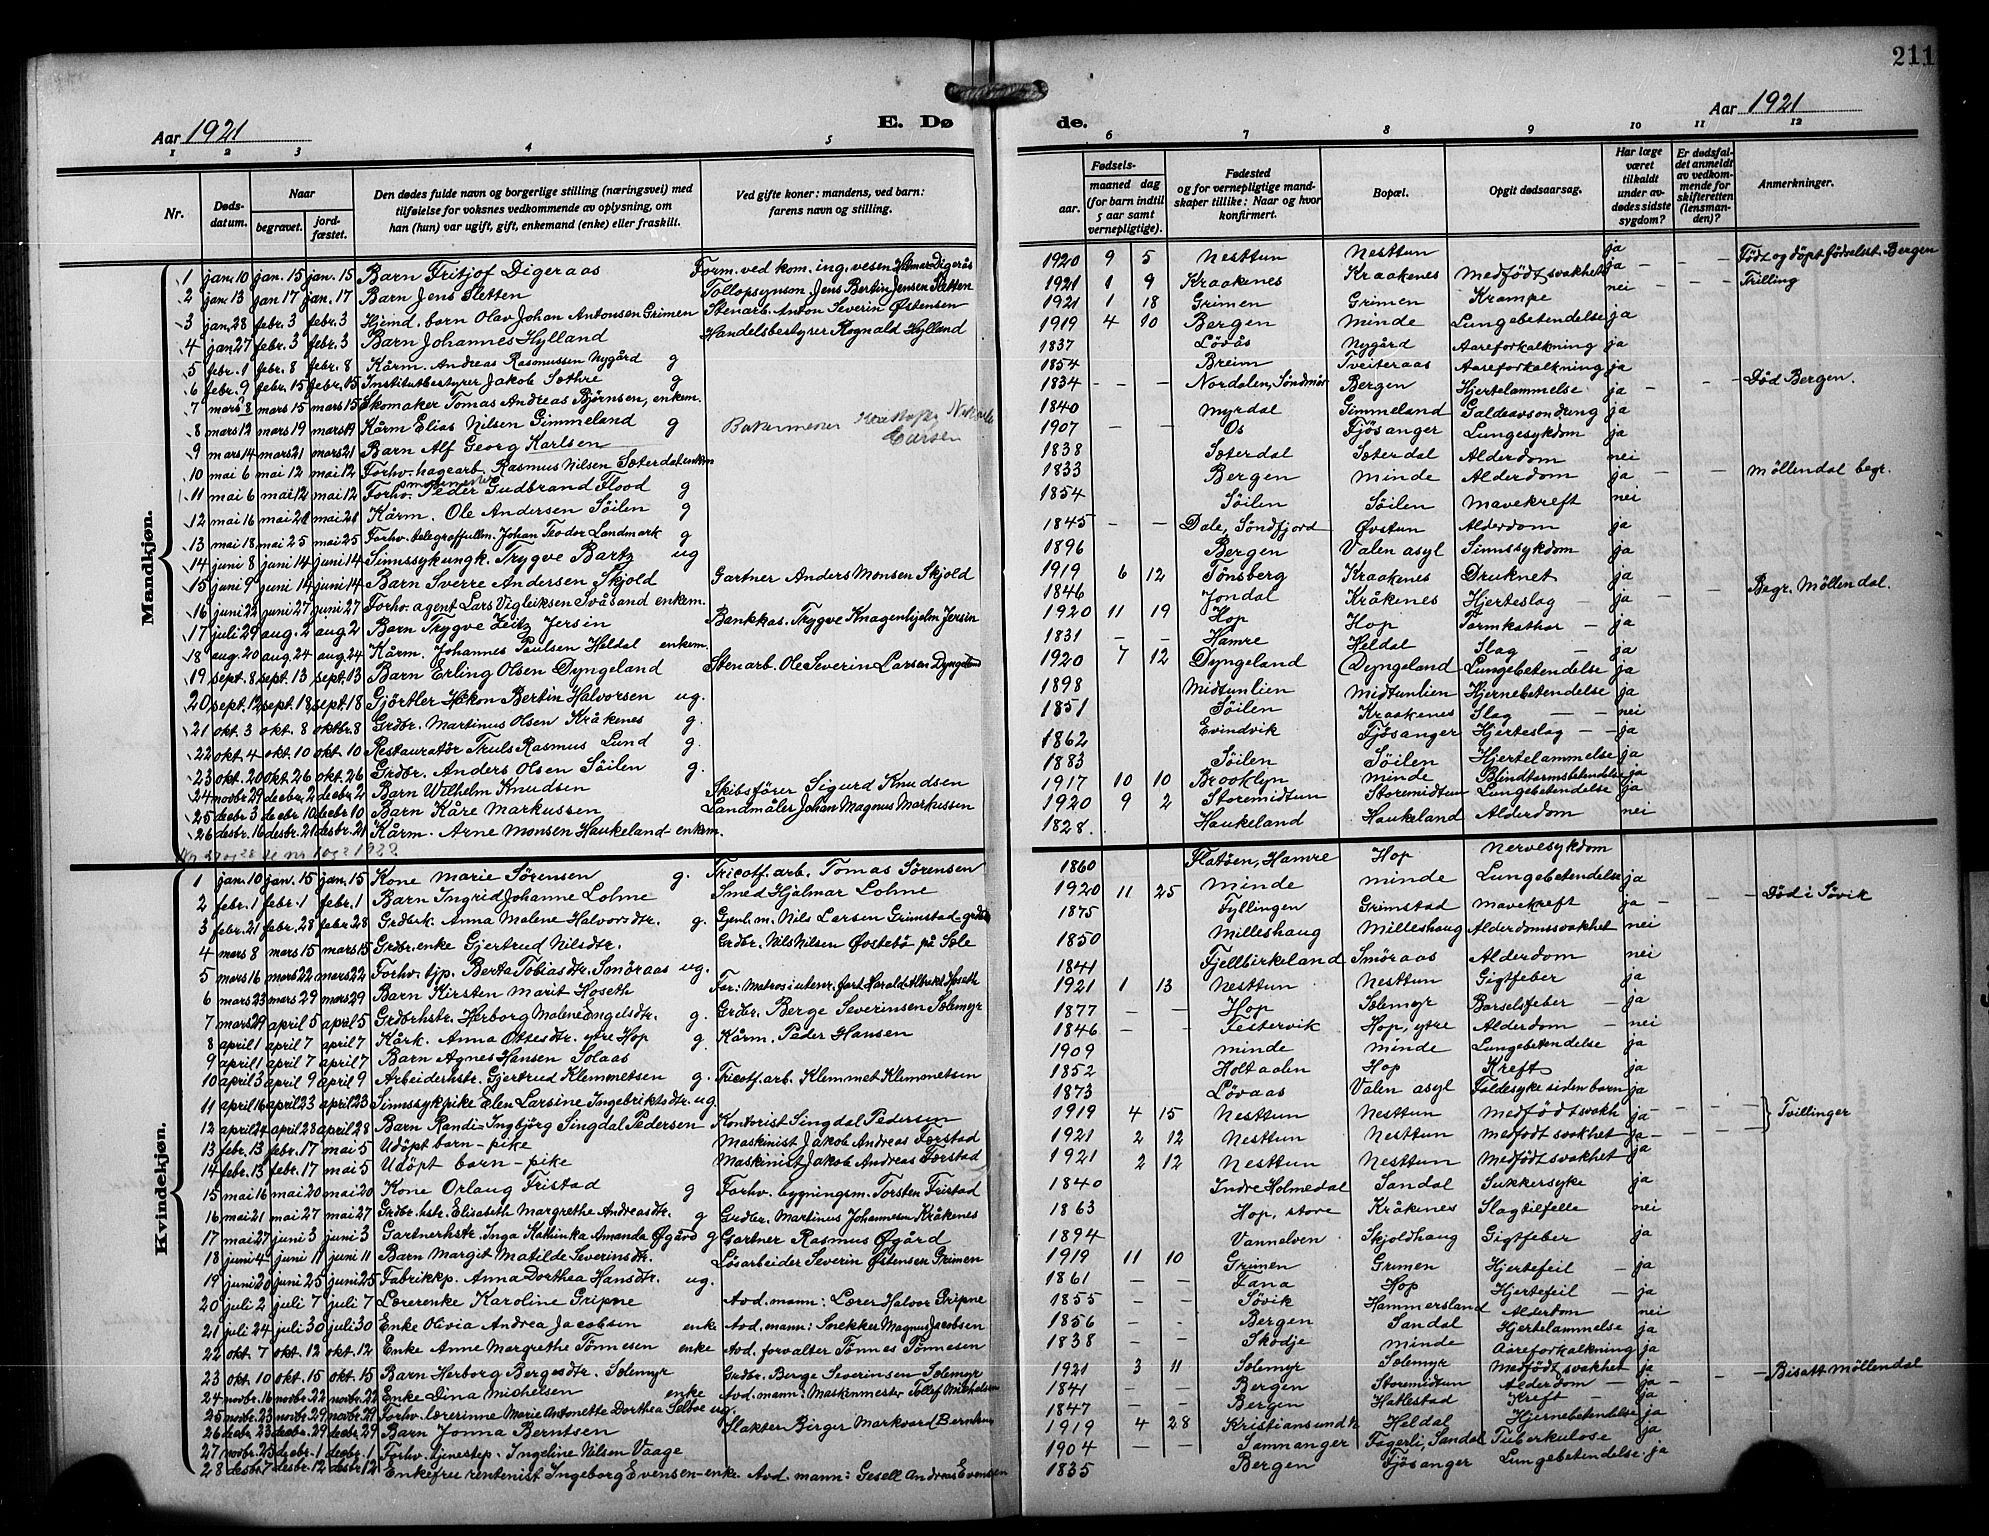 211
Aar 1921
E. Dø de.
Aar 1921
1 2 3 4 5 6 7 8 9 10 11 12
Nr.
Døds-datum.
Naar
begravet.
jord-fæstet.
Den dødes fulde navn og borgerlige stilling (næringsvei) med tilføielse for voksnes vedkommende av oplysning, om han (hun) var ugift, gift, enkemand (enke) eller fraskilt.
Ved gifte koner: mandens, ved barn: farens navn og stilling.
Fødsels-
aar.
maaned dag (for barn indtil 5 aar samt vernepligtige).
Fødested og for vernepligtige mandskaper tillike: Naar og hvor konfirmert.
Bopæl.
Opgit dødsaarsag.
Har læge været tilkaldt under avdødes sidste sygdom?
Er dødsfaldet anmeldt av vedkommende for skifteretten (lensmanden)?
Anmerkninger.
Mandkjøn.
1 jan. 10 jan. 15 jan. 15 Barn Fritjof Digeraas Form. ved kom. ing. vesen Hilmar Digerås 1920 9 5 Nesttun Nesttun ja Født og døpt fødselsst. Bergen
2 jan. 13 jan 17 jan. 17 Barn Jens Sletten Tollopsynsm. Jens Bertin Jensen Sletten 1921 1 9 Kraakenes Kraakenes Medfödt svakhet ja – – – Trilling
3 jan. 28 febr. 3 febr. 3 Hjemd. barn Olav Johan Antonsen Grimen Stenarb. Anton Severin Østensen 1921 1 18 Grimen Grimen Krampe nei
4 jan. 27 febr. 3 febr. 3 Barn Johannes Hylland Handelsbestyrer Rognald Hylland 1919 4 10 Bergen Minde Lungebetendelse ja
5 febr. 1 febr. 8 febr. 8 Kårm. Andreas Rasmussen Nygård g 1837 Lövås Nygård Aareforkalkning ja
6 febr. 9 febr. 15 febr. 15 Institutbestyrer Jakob Sæthre g 1854 Breim Tveiteraas Aareforkalkning ja
7 mars 8 mars 15 mars 15 Skomaker Tomas Andreas Björnsen, enkem. 1834 – – – Nordalen, Söndmör Bergen Hjertelammelse ja – – Död Bergen.
8 mars 12 mars 19 mars 19 Kårm Elias Nilsen Gimmeland g 1840 Myrdal Gimmeland Galdeavsondring ja
9 mars 14 mars 21 mars 21 Barn Alf Georg Karlsen Carsen 1907 Os Fjösanger Lungesykdom ja
10 mai 6 mai 12 mai 12 Forhv. hagearb. Rasmus Nilsen Sæterdal enkem 1838 Sæterdal Sæterdal Alderdom nei
11 mai 6 mai 12 mai 12 Forhv. Peder Gudbrand Flood g 1833 Bergen Minde Alderdom ja – – Möllendal begr.
12 mai 16 mai 21 mai 21 Kårm. Ole Andersen Söilen g 1854 Söilen Söilen Mavekreft nei
13 mai 18 mai 25 mai 25 Forhv. telegraffullm. Johan Teodor Landmark g 1845 – – Dale, Söndfjord Øvstun Alderdom ja
14 juni 8 juni 14 juni 14 Sinnssyk ungk. Trygve Bartz ug 1896 Bergen Valen asyl Sinnssykdom ja
15 juni 9 juni 14 juni 14 Barn Sverre Andersen Skjold Gartner Anders Monsen Skjold 1919 6 12 Tönsberg Kraakenes Druknet ja
16 juni 22 juni 27 juni 27 Forhv. agent Lars Vigleiksen Svåsand enkem. 1846 Jondal Kråkenes Hjerteslag – ja – – Begr. Möllendal.
17 juli 29 aug. 2 aug. 2 Barn Trygve Zeitz Jersin Bankkas. Trygve Knagenhjelm Jersin 1920 11 19 Hop Hop Tarmkathar – ja
18 aug. 20 aug. 24 aug. 24 Kårm. Johannes Paulsen Heldal enkem. 1831 – – Hamre Heldal Slag – ja
19 sept. 8 sept. 13 sept. 13 Barn Erling Olsen Dyngeland Stenarb. Ole Severin Larsen Dyngeland 1920 7 12 Dyngeland Dyngeland Lungebetendelse ja
20 sept. 12 sept. 18 sept. 18 Gjörtler Håkon Bertin Halvorsen ug. 1898 Midtunlien Midtunlien Hjernebetendelse ja
21 okt. 3 okt. 8 oktbr. 8 Grdbr. Martinus Olsen Kråkenes g. 1851 Söilen Kraakenes Slag – – nei
22 okt. 4 okt. 10 okt. 10 Restauratör Truls Rasmus Lund g. 1862 Evindvik Fjösanger Hjerteslag – – ja
23 okt. 20 okt. 26 okt. 26 Grdbr. Anders Olsen Söilen g. 1883 Söilen Söilen Hjertelammelse ja
24 novbr. 29 decbr. 2 decbr. 2 Barn Wilhelm Knudsen Skibsförer Sigurd Knudsen 1917 10 10 Brooklyn Minde Blindtarmsbetendelse ja
25 decbr. 3 decbr. 10 decbr. 10 Barn Kåre Markussen Landmåler Johan Magnus Markussen 1920 9 2 Storemidtun Storemidtun Lungebetendelse ja
26 desbr. 16 desbr. 21 desbr. 21 Kårm. Arne Monsen Haukeland – enkem. 1828. Haukeland Haukeland Alderdom nei
Nr 27 og 28 se nr 1 og 2 1922
Kvindekjøn.
1 jan. 10 jan. 15 jan. 15 Kone Marie Sörensen g. Tricotf. arb. Tomas Sörensen 1860 Flatöen, Hamre Hop Nervesykdom
2 febr. 1 febr. 1 febr. 1 Barn Ingrid Johanne Lohne Smed Hjalmar Lohne 1920 11 25 Minde Minde Lungebetendelse ja
3 febr. 21 febr. 28 febr. 28 Grdbrk. Anna Malene Halvorsdtr. g. Gjenb. m. Nils Larsen Grimstad 1875 Fyllingen Grimstad Mavekreft ja – – – Död i Søvik
4 mars 8 mars 15 mars 15 Grdbr. enke Gjertrud Nilsdtr. Grdbr. Nils Nilsen Øvstebö på Sæle 1850 Milleshaug Milleshaug Alderdomssvakhet nei
5 mars 16 mars 22 mars 22 Forhv. tjp. Berta Tobiasdtr. Smöraas ug. 1841 Fjellbirkeland Smöraas Alderdom nei
6 mars 23 mars 29 mars 29 Barn Kirsten Marit Hoseth Far: Matros i utenr. fart Harald Albrekt Hoseth 1921 1 13 Nesttun Nesttun Gigtfeber ja
7 mars 29 april 5 april 5 Grdbrhstr. Herborg Malene Engelsdtr. g. Grdbr. Berge Severinsen Solemyr 1877 – – Hop Solemyr Barselfeber – ja
8 april 1 april 7 april 7 Kårk. Anna Ottesdtr. ytre Hop g Kårm. Peder Hansen 1846 – – Festervik Hop, ytre Alderdom – nei
9 april 1 april 7 april 7 Barn Agnes Hansen Solaas 1909 Minde Minde Lungebetendelse ja
10 april 3 april 9 april 9 Arbeiderhstr. Gjertrud Klemmetsen g. Tricotf. arb. Klemmet Klemmetsen 1852 Holtaalen Hop Kreft ja
11 april 16 april 23 april 23 Sinnssyk pike Elen Larsine Ingebriktsdtr. ug 1873 Lövaas Valen asyl Faldesyke siden barn ja
12 april 24 april 28 april 28 Barn Randi-Ingbjörg Singdal Pedersen – Kontorist Singdal Pedersen 1919 4 15 Nesttun Nesttun Medfödt svakh. ja – – –
13 febr. 13 febr. 17 mai 5 Udöpt barn – pike Maskinist Jakob Andreas Færstad 1921 2 12 Nesttun Nesttun Medfödt svakhet ja – – – } Tvillinger
14 febr. 13 febr. 17 mai 5 Udöpt barn – pike Maskinist Jakob Andreas Færstad 1921 2 12 Nesttun Nesttun Medfödt svakhet ja
15 mai 16 mai 20 mai 20 Kone Orlaug Fristad g Forhv. bygningsm. Torsten Fristad 1840 Indre Holmedal Sandal Sukkersyke ja
16 mai 21 mai 27 mai 27 Grdbr. hstr. Elisabeth Margrethe Andreasdtr. g Grdbr. Martinus Johannesen Kråkenes 1863 Hop, store Kråkenes Slagtilfelle nei
17 mai 27 juni 3 juni 3 Gartnerhstr. Inga Kathinka Amanda Øgård g Gartner Rasmus Øgård 1894 Vannelven Skjoldhaug Gigtfeber ja
18 juni 4 juni 11 juni 11 Barn Margit Matilde Severinsdtr. Lösarbeider Severin Østensen Grimen 1919 11 10 Grimen Grimen Hjertefeil – ja
19 juni 20 juni 25 juni 25 Fabrikkp. Anna Dorthea Hansdtr. ug. 1861 – – Fana Hop Hjertefeil – ja
20 juli 2 juli 7 juli 7 Lærerenke Karoline Gripne Avd. mann: Lærer Halvor Gripne 1855 – – Sövik Hammersland Alderdom nei
21 juli 24 juli 30 juli 30 Enke Olivia Andrea Jacobsen enke Avd. mann: Snekker Magnus Jacobsen 1856 – – Bergen Sandal Hjertelammelse ja
22 okt. 7 okt. 12 okt. 12 Enke Anne Margrethe Tönnesen enke Avd. forvalter Tönnes Tönnesen 1838 – – Skodje Minde Aareforkalkning ja
23 okt. 10 okt. 15 okt. 15 Barn Herborg Bergesdtr. Solemyr Grdbr. Berge Severinsen – Solemyr 1921 3 11 Solemyr Solemyr Medfödt svakhet ja
24 novbr. 16 novbr. 22 novbr. 22 Enke Dina Michelsen enke Avd. mann: Maskinmester Tollef Michelsen 1841 – – Bergen Storemidtun Alderdom – ja – – Bisatt Möllendal
25 novbr. 23 novbr. 29 novbr. 29 Forhv. lærerinne Marie Antonette Dorthea Selboe ug. 1847 – – Bergen Hatlestad Kreft – ja
26 decbr. 23 decbr. 29 decbr. 29 Barn Jonna Berntsen Slakter Birger Markvard Berntsen 1919 4 28 Kristiansund N. Heldal Hjernebetendelse ja
27 novbr. 25 decbr. 1 decbr. 1 Forhv. tjenestep. Ingeline Nilsen Vaage 1904 – – Samnanger Fagerli, Sandal Tuberkulose ja
28 desbr. 7 desbr. 12 desbr. 12 Enkefru rentenist Ingeborg Evensen – enke. Avd. mann: Gesell Andreas Evensen 1835 Bergen Fjösanger Lungebetendelse ja